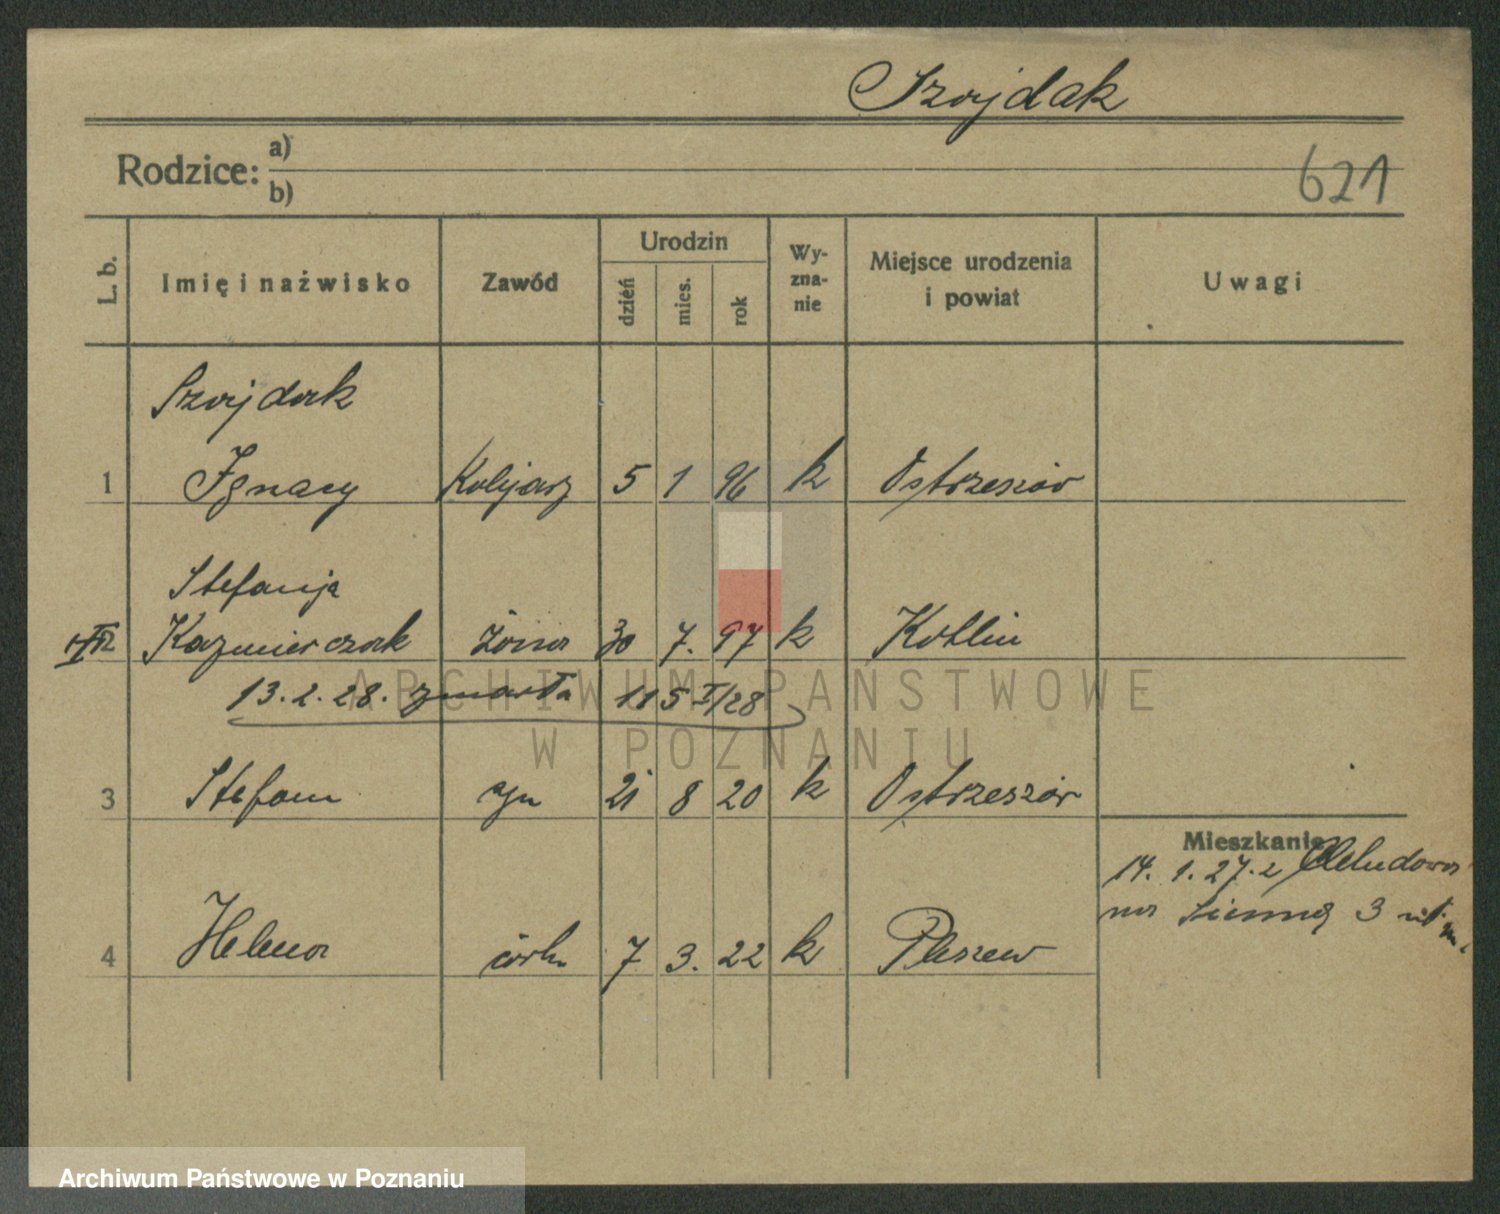 Szojdak
Rodzice: a)
b)
621
L. b. Imię i nazwisko Zawód Urodzin dzień mies. rok Wyznanie Miejsce urodzenia i powiat Uwagi
Szojdak
1 Ignacy Kolejarz 5 1 96 k Ostrzeszów
Stefanja
Kazmierczak żona 30 7. 97 k Kotlin
13. 2. 28. zmarła 115 I/28
ARCHIWUM PAŃSTWOWE
W POZNANIU
3 Stefan syn 21 8 20 k Ostrzeszów
Mieszkanie
14. 1. 27. z
na Zimną 3
4 Helena córka 7 3. 22 k Pleszew
Archiwum Państwowe w Poznaniu